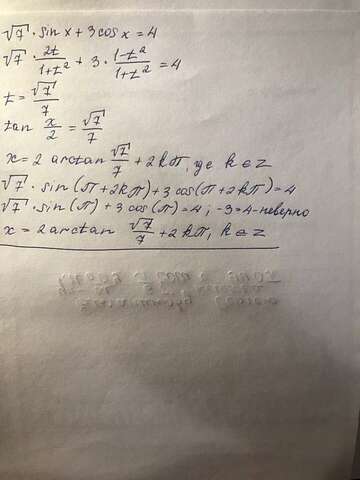 √7 · sin x + 3 cos x = 4
√7 · 2t/(1+t²) + 3 · (1-t²)/(1+t²) = 4
t = √7/7
tan x/2 = √7/7
x = 2 arctan √7/7 + 2kπ, где k ∈ z
√7 · sin(π + 2kπ) + 3 cos(π + 2kπ) = 4
√7 · sin(π) + 3 cos(π) = 4; -3 = 4 - неверно
x = 2 arctan √7/7 + 2kπ, k ∈ z